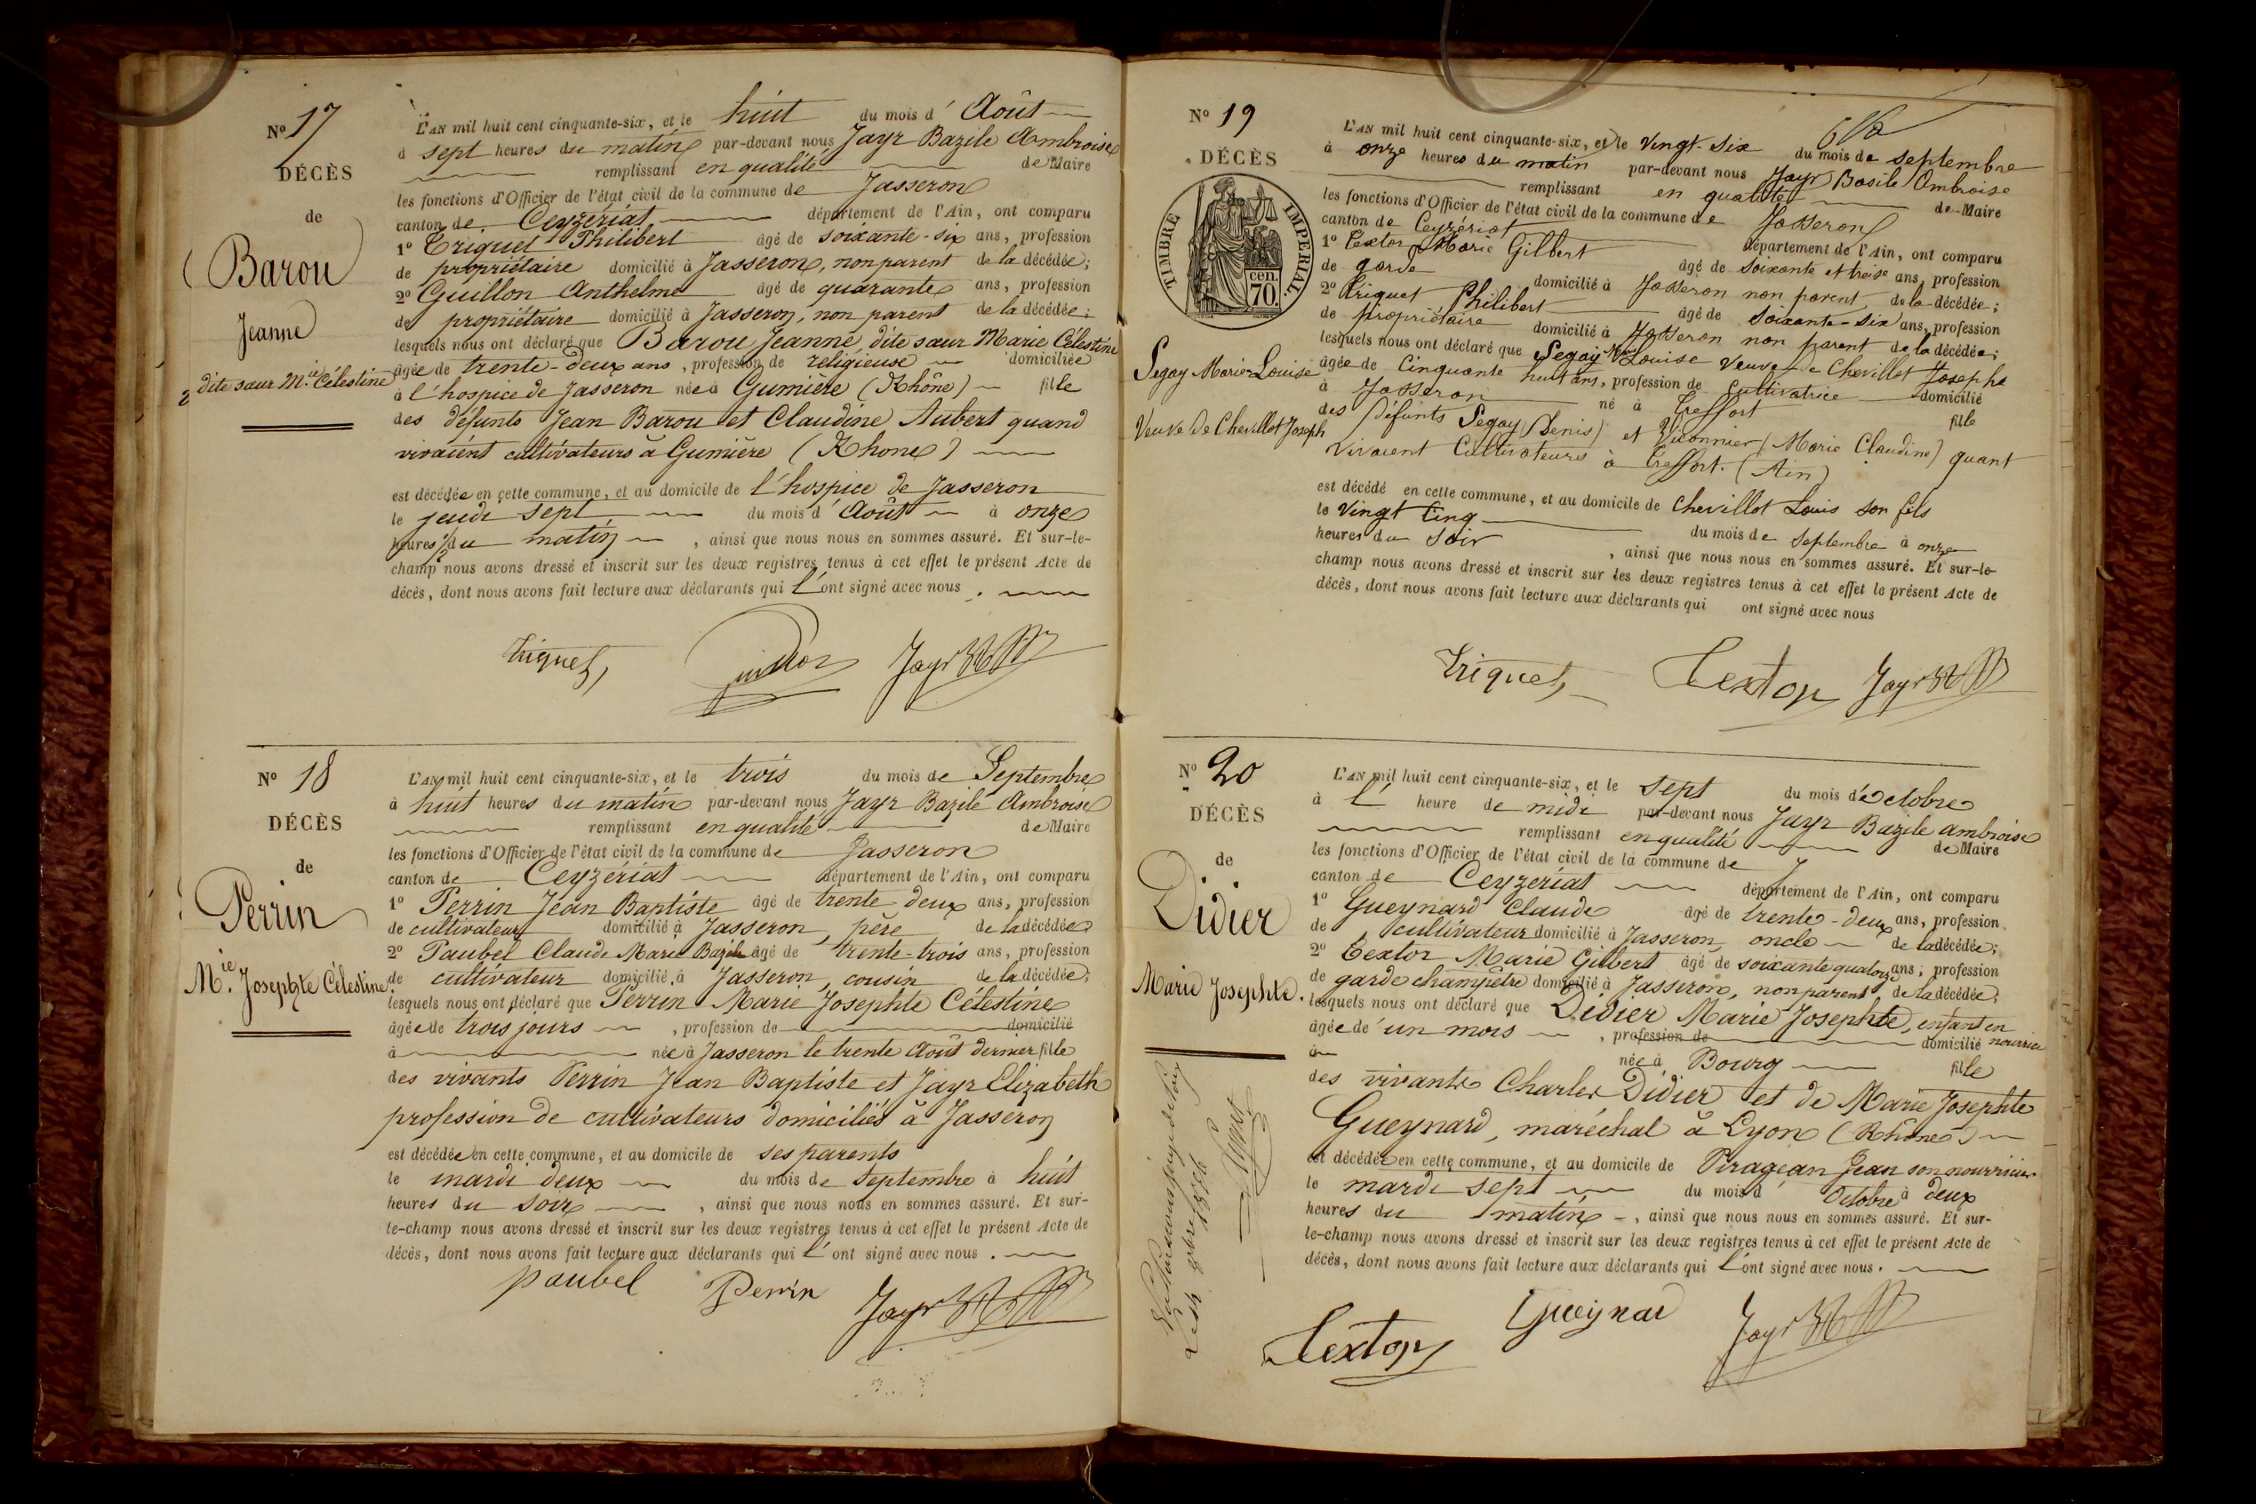 Nº 17
DÉCÈS
de
Barou
Jeanne
dite sœur M.ie Célestine
L'AN mil huit cent cinquante-six, et le huit du mois d' Août
à sept heures du matin par-devant nous Jayr Bazile Ambroise
remplissant en qualité de Maire
les fonctions d'Officier de l'état civil de la commune de Jasseron
canton de Ceyzériat département de l'Ain, ont comparu
1º Triquet Philibert âgé de soixante-six ans, profession
de propriétaire domicilié à Jasseron, non parent de la décédée;
2º Guillon Anthelme âgé de quarante ans, profession
de propriétaire domicilié à Jasseron, non parent de la décédée;
lesquels nous ont déclaré que Barou Jeanne, dite sœur Marie Célestine
âgée de trente-deux ans, profession de religieuse domiciliée
à l'hospice de Jasseron née à Gumière (Rhône) fille
des défunts Jean Barou et Claudine Aubert quand
vivaient cultivateurs à Gumière (Rhone)
est décédée en cette commune, et au domicile de l'hospice de Jasseron
le jeudi sept du mois d' Août à onze
heures du matin, ainsi que nous nous en sommes assuré. Et sur-le-
champ nous avons dressé et inscrit sur les deux registres tenus à cet effet le présent Acte de
décès, dont nous avons fait lecture aux déclarants qui l'ont signé avec nous.
Triquet, Guillon Jayr
Nº 18
DÉCÈS
de
Perrin
M.ie Josephte Célestine.
L'AN mil huit cent cinquante-six, et le trois du mois de Septembre
à huit heures du matin par-devant nous Jayr Bazile Ambroise
remplissant en qualité de Maire
les fonctions d'Officier de l'état civil de la commune de Jasseron
canton de Ceyzériat département de l'Ain, ont comparu
1º Perrin Jean Baptiste âgé de trente deux ans, profession
de cultivateur domicilié à Jasseron, père de la décédée
2º Paubel Claude Marie Bazile âgé de trente-trois ans, profession
de cultivateur domicilié à Jasseron, cousin de la décédée;
lesquels nous ont déclaré que Perrin Marie Josephte Célestine
âgée de trois jours, profession de domicilié
à née à Jasseron le trente Août dernier fille
des vivants Perrin Jean Baptiste et Jayr Elizabeth
profession de cultivateurs domiciliés à Jasseron
est décédée en cette commune, et au domicile de ses parents
le mardi deux du mois de Septembre à huit
heures du soir, ainsi que nous nous en sommes assuré. Et sur-
le-champ nous avons dressé et inscrit sur les deux registres tenus à cet effet le présent Acte de
décès, dont nous avons fait lecture aux déclarants qui l'ont signé avec nous.
Paubel Perrin Jayr
Nº 19
DÉCÈS
TIMBRE IMPERIAL.
cen.
70.
Segay Marie Louise
Veuve De Chevillot Joseph
L'AN mil huit cent cinquante-six, et le vingt-six du mois de septembre
à onze heures du matin par-devant nous Jayr Basile Ambroise
remplissant en qualité de Maire
les fonctions d'Officier de l'état civil de la commune de Jasseron
canton de Ceyzériat département de l'Ain, ont comparu
1º Textor Marie Gilbert âgé de soixante et treise ans, profession
de garde domicilié à Jasseron non parent de la décédée;
2º Triquet Philibert âgé de soixante-six ans, profession
de propriétaire domicilié à Jasseron non parent de la décédée;
lesquels nous ont déclaré que Segay Marie Louise Veuve de Chevillot Josephe
âgée de Cinquante huit ans, profession de Cultivatrice domicilié
à Jasseron né à Treffort fille
des Défunts Segay (Denis) et Viconnier (Marie Claudine) quant
vivaient Cultivateurs à Treffort. (Ain)
est décédé en cette commune, et au domicile de Chevillot Louis son fils
le vingt cinq du mois de Septembre à onze
heures du soir, ainsi que nous nous en sommes assuré. Et sur-le-
champ nous avons dressé et inscrit sur les deux registres tenus à cet effet le présent Acte de
décès, dont nous avons fait lecture aux déclarants qui ont signé avec nous
Triquet, Textor Jayr
Nº 20
DÉCÈS
de
Didier
Marie Josephte.
L'AN mil huit cent cinquante-six, et le sept du mois d'Octobre
à l' heure de midi par-devant nous Jayr Bazile ambroise
remplissant en qualité de Maire
les fonctions d'Officier de l'état civil de la commune de J
canton de Ceyzeriat département de l'Ain, ont comparu
1º Gueynard Claude âgé de trente-deux ans, profession
de cultivateur domicilié à Jasseron, oncle de la décédée;
2º Textor Marie Gilbert âgé de soixante quatorze ans, profession
de garde champêtre domicilié à Jasseron, non parent de la décédée;
lesquels nous ont déclaré que Didier Marie Josephte, enfant en
âgée de un mois, profession de domicilié nourrice
à née à Bourg fille
des vivants Charles Didier et de Marie Josephte
Gueynard, maréchal à Lyon (Rhône)
est décédée en cette commune, et au domicile de Piragean Jean son nourricier
le mardi sept du mois d' Octobre à deux
heures du matin, ainsi que nous nous en sommes assuré. Et sur-
le-champ nous avons dressé et inscrit sur les deux registres tenus à cet effet le présent Acte de
décès, dont nous avons fait lecture aux déclarants qui l'ont signé avec nous.
Textor Gueynard Jayr